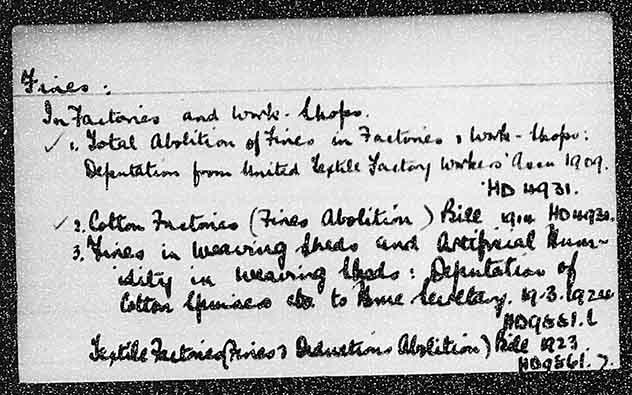 Fines:
In Factories and Work-Shops.
✓ 1. Total Abolition of Fines in Factories & Work-Shops:
Deputation from United Textile Factory Workers' Assn 1909.
HD 4931.
✓ 2. Cotton Factories (Fines Abolition) Bill HD 4931.
3. Fines in Weaving Sheds and Artificial Hum-
idity in Weaving Sheds: Deputation of
Cotton Spinners to Home Secretary. 19.3.1924
HD9881.
Textile Factories (Fines & Deductions Abolition) Bill 1923
HD9861.7.